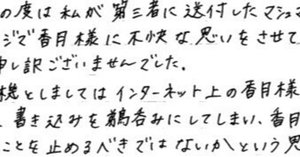 の度は私が第三者に送付したマシュ
ジで香目様に不快な思いをさせて
申し訳ございませんでした。
機としましてはインターネット上の香目様
書き込みを鵜呑みにしてしまい、香目
ことを止めるべきではないかという思